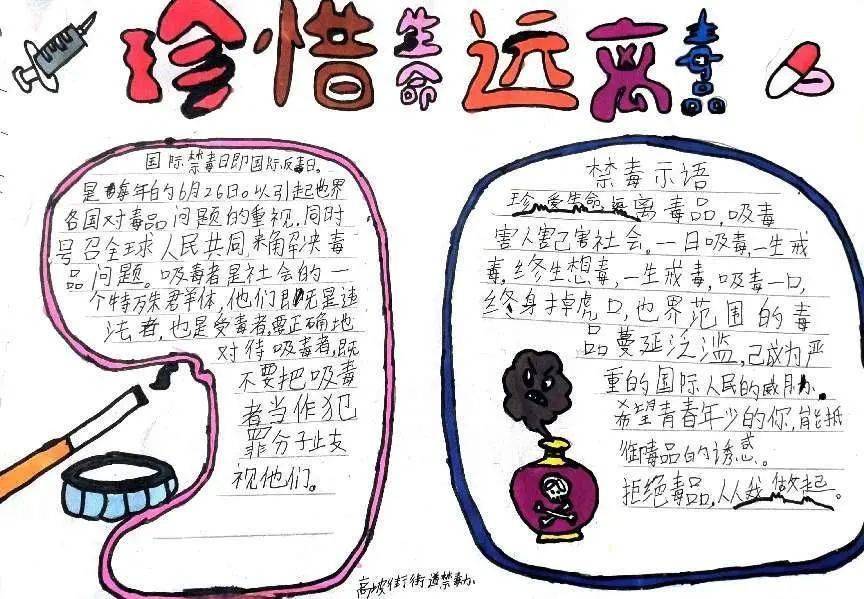 珍惜生命远离毒品
国际禁毒日即国际反毒日。
是每年的6月26日。以引起世界
各国对毒品问题的重视,同时
号召全球人民共同来解决毒
品问题。吸毒者是社会的一
个特殊群体,他们既是违
法者,也是受毒者,要正确地
对待吸毒者,既
不要把吸毒
者当作犯
罪分子歧
视他们。
禁毒示语
珍爱生命,远离毒品,吸毒
害人害己害社会。一日吸毒,一生戒
毒,终生想毒,一生戒毒,吸毒一口,
终身掉虎口,也界范围的毒
品蔓延泛滥,己成为严
重的国际人民的威胁.
希望青春年少的你,能抵
御毒品的诱惑。
拒绝毒品,人人我做起。
高坡街街道禁毒办